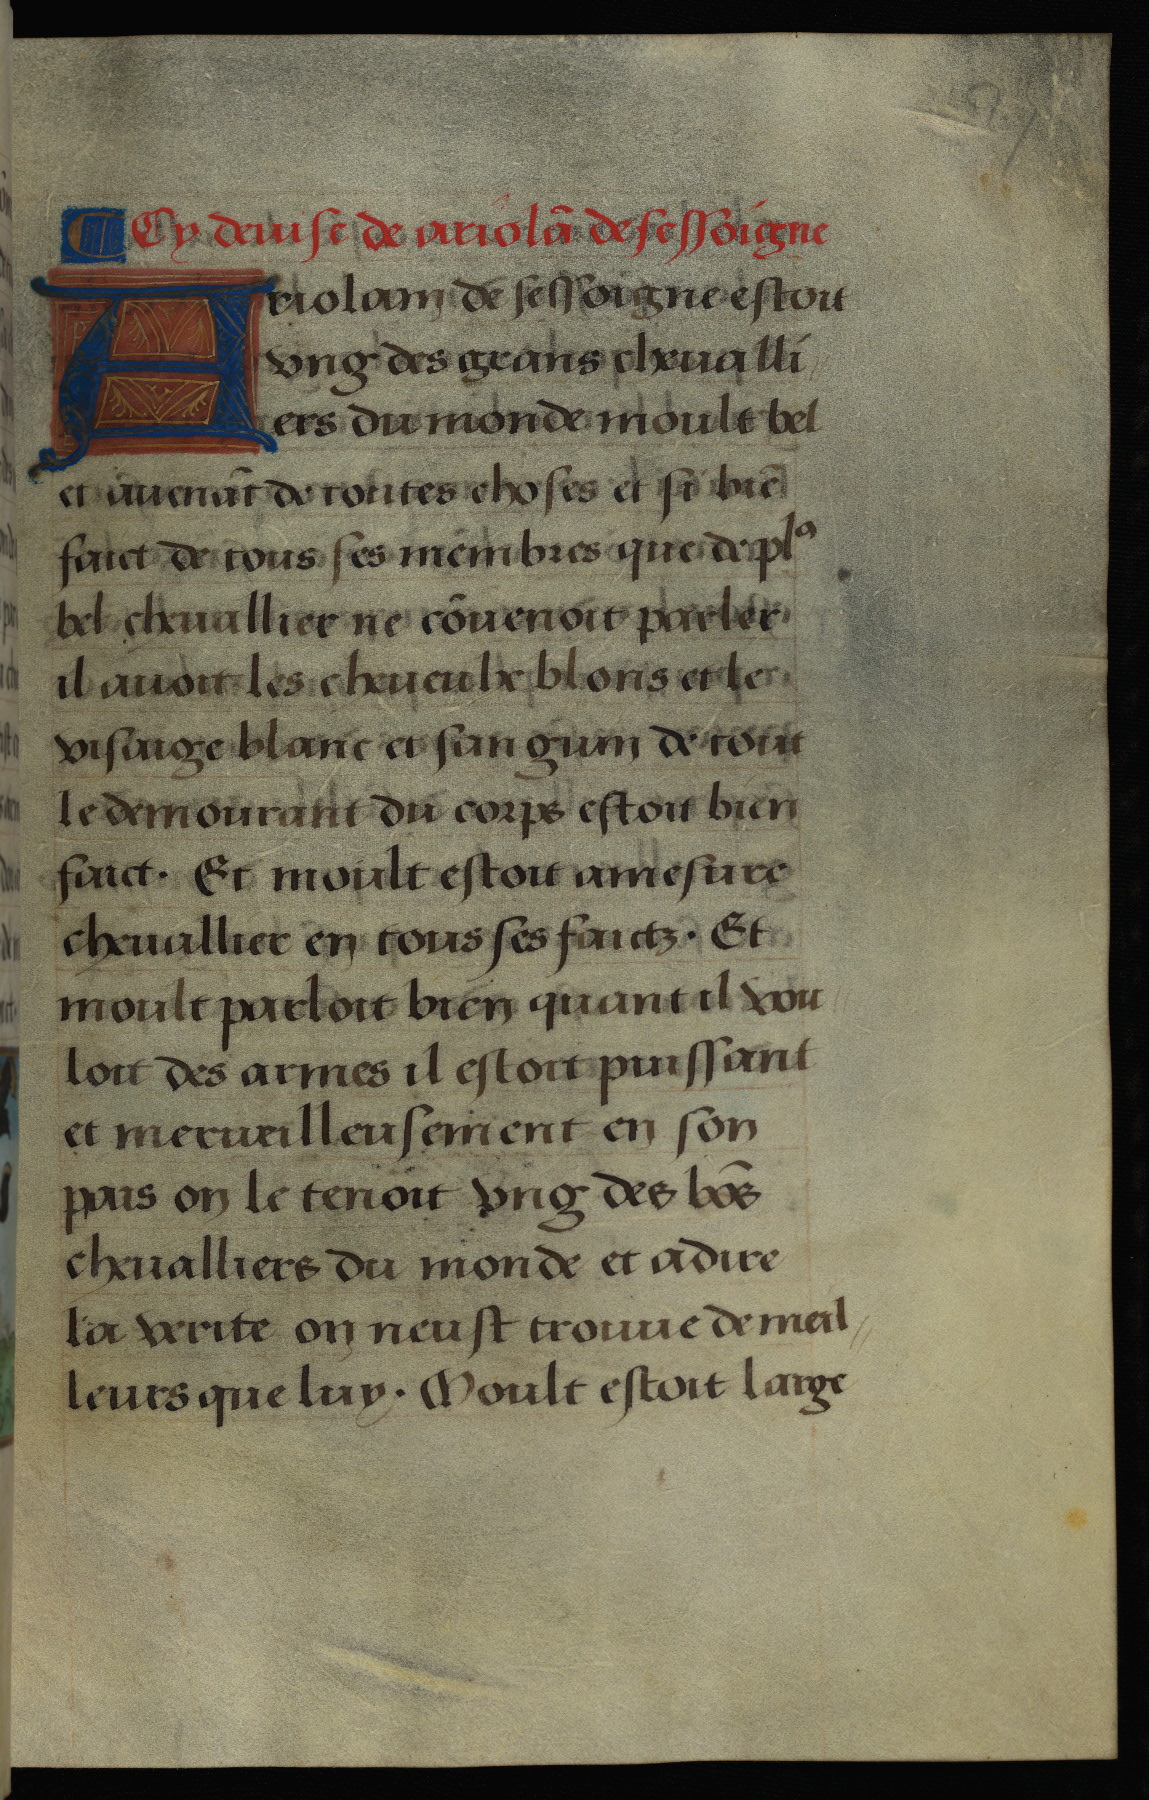 ¶ Cy deuise de ariolā de sessoigne
Ariolam de sessoigne estoit
vng des grans cheualli
ers du monde moult bel
et auenāt de toutes choses et si biē
faict de tous ses membres que de plꝰ
bel cheuallier ne cōuenoit parler
il auoit les cheueulx blons et le
visaige blanc et sanguin de tout
le demourant du corps estoit bien
faict. Et moult estoit amesure
cheuallier en tous ses faictz. Et
moult parloit bien quant il vou
loit des armes il estoit puissant
et merueilleusement en son
pais on le tenoit vng des bōs
cheualliers du monde et adire
la verite on neust trouue de meil
leurs que luy. Moult estoit large